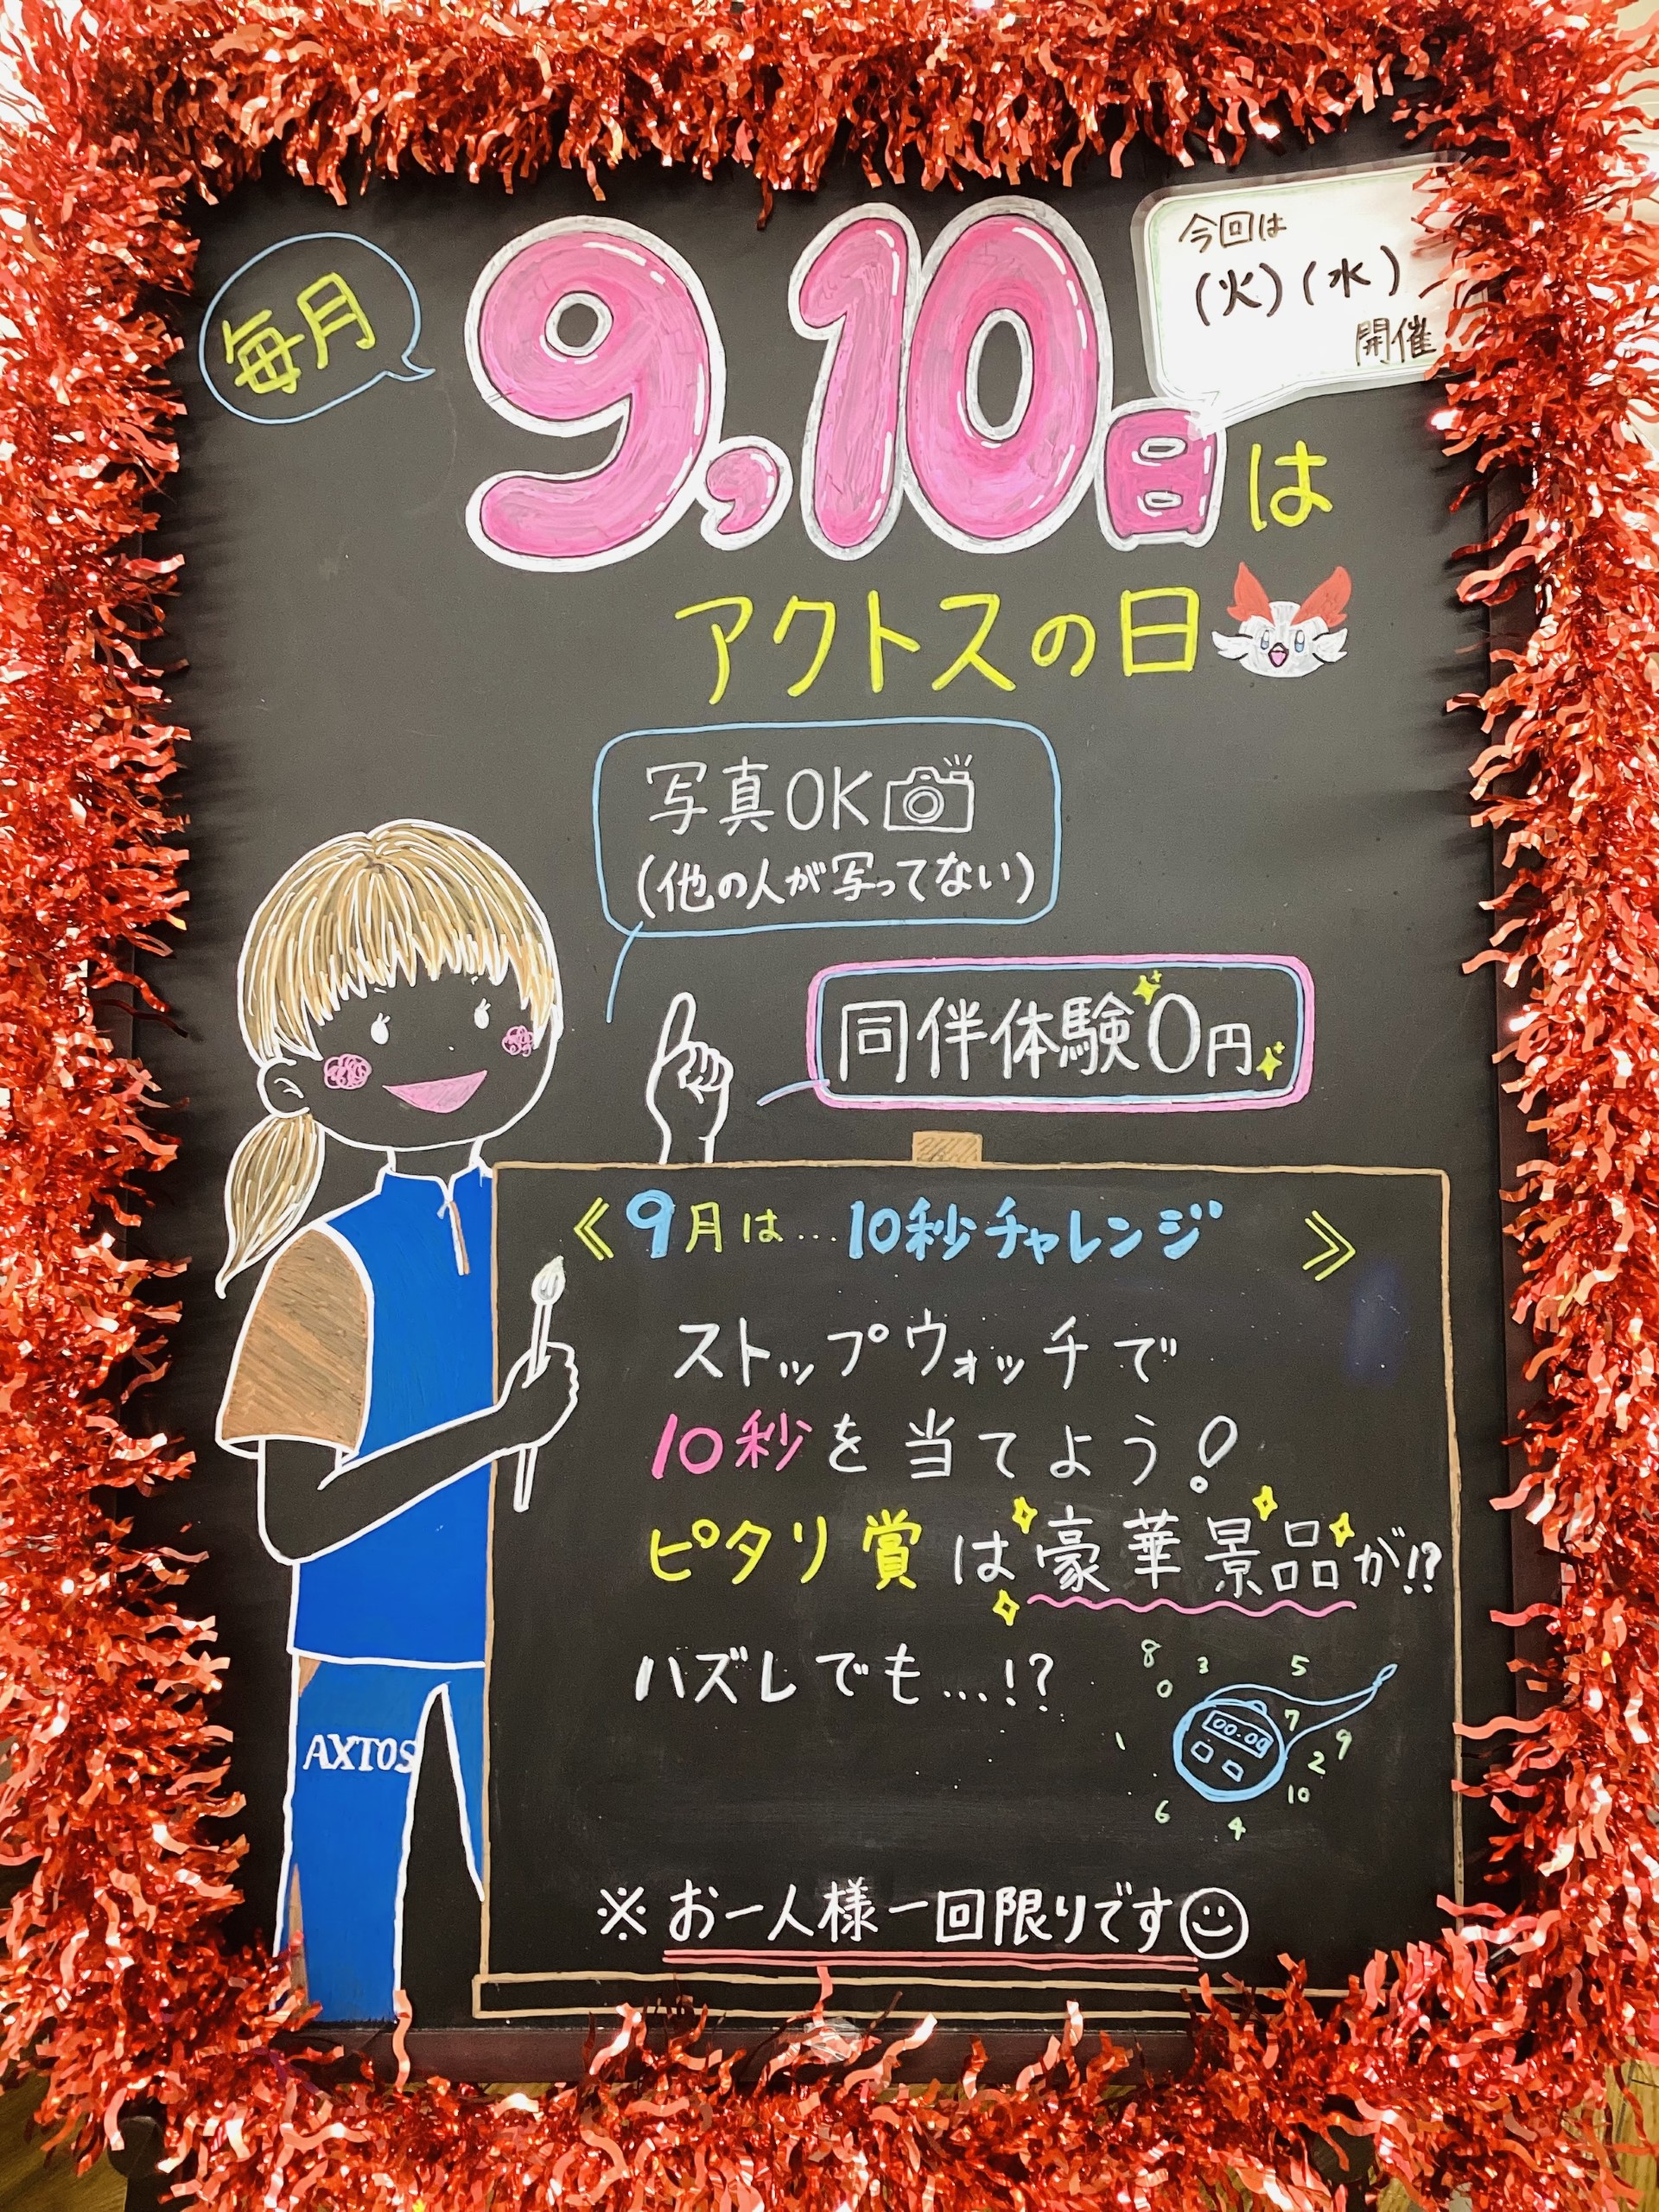 毎月
9,10日は
今回は
(火)(水)
開催
アクトスの日
写真OK
(他の人が写ってない)
同伴体験0円
《9月は…10秒チャレンジ》
ストップウォッチで
10秒を当てよう!
ピタリ賞は豪華景品が!?
ハズレでも…!?
8 3 5
0
00:00
7
1 9
2
10
6
4
AXTOS
※お一人様一回限りです